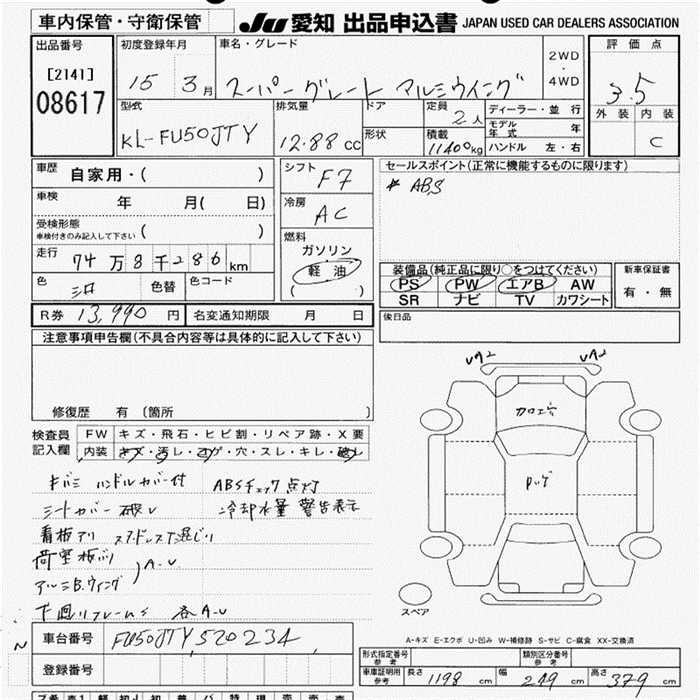 車内保管・守衛保管
JU 愛知 出品申込書 JAPAN USED CAR DEALERS ASSOCIATION
出品番号
[2141]
08617
初度登録年月
15 3月
車名・グレード
スーパーグレート アルミウイング
2WD
・
4WD
評価点
3.5
外装 内装
C
型式
KL-FU50JTY
排気量
12.88 cc
ドア
形状
定員
2人
積載
11400kg
ディーラー・並行
モデル年式 年
ハンドル 左・右
車歴
自家用・( )
車検
年 月( 日)
受検形態
車検付きのみ記入して下さい ( )
走行
74万8千286km
色
シロ
色替
色コード
シフト
F7
冷房
AC
燃料
ガソリン
軽油
( )
セールスポイント(正常に機能するものに限ります)
# ABS
装備品(純正品に限り○をつけてください)
PS PW エアB AW
SR ナビ TV カワシート
新車保証書
有・無
R券 13,990 円
名変通知期限 月 日
後日品
注意事項申告欄(不具合内容等は具体的に記入して下さい)
修復歴 有 [箇所 ]
検査員記入欄
FW キズ・飛石・ヒビ割・リペア跡・X要
内装 キズ・汚レ・コゲ・穴・スレ・キレ・破レ
キバミ ハンドルカバー付
ABSチェック点灯
シートカバー 破レ
冷却水量 警告表示
看板アリ スタッドレスT混じり
荷室板バリ
アルミB.ウィング
A・U
下廻リフレームS 各A・U
UA2 UA2
スペア
A-キズ E-エクボ U-凹み W-補修跡 S-サビ C-腐食 XX-交換済
車台番号
FU50JTY,520234
登録番号
形式指定番号
参考
類別区分番号
参考
車庫証明用
参考
長さ 1198 cm
幅 249 cm
高さ 379 cm